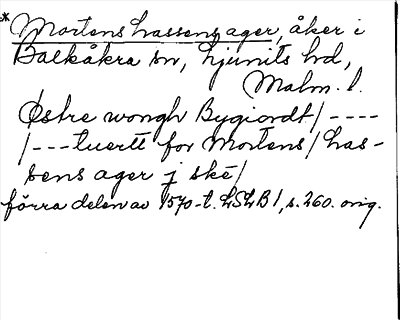 *Mortens hassens ager, åker i
Balkåkra sn, Ljunits hd,
Malm. l.
Østre wongh Bygiordt/ ----
/---tuertt for Mortens/ has-
sens ager j ske/
förra delen av 1570-t. LSLB 1, s. 260. orig.